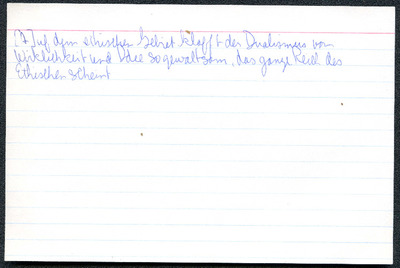 [A]uf dem ethischen Gebiet klafft der Dualismus von
Wirklichkeit und Idee so gewaltsam, das ganze Reich des
Ethischen scheint